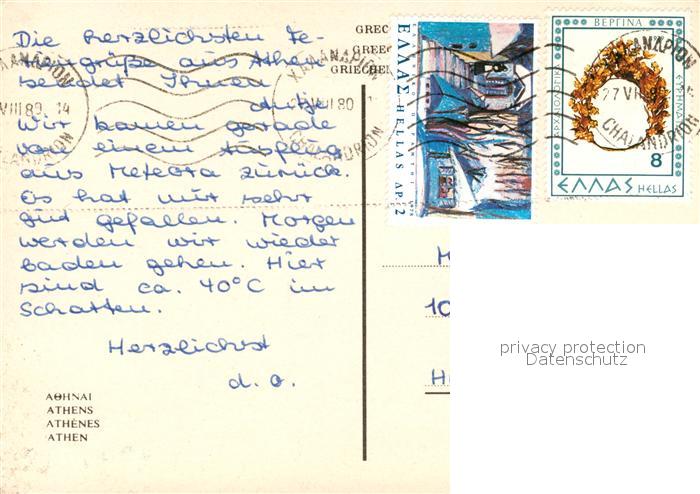 Die herzlichsten Fe-
riengrüße aus Athen
sendet Ihnen
Antje
Wir kamen gerade
von einem Ausflug
aus Meteora zurück.
Es hat mir sehr
gut gefallen. Morgen
werden wir wieder
baden gehen. Hier
sind ca. 40°C im
Schatten.
Herzlichst
d. o.
ΑΘΗΝΑΙ
ATHENS
ATHÈNES
ATHEN
GREC
GREEC
GRIECHE
ΧΑΛΑΝΔΡΙΟΝ
VIII 80 14
CHALANDRION
ΧΑΛΑΝΔΡΙΟΝ
VIII 80
CHALANDRION
ΕΛΛΑΣ HELLAS ΔΡ. 2
ΒΕΡΓΙΝΑ
ΧΑΛΑΝΔΡΙΟΝ
27 VIII
CHALANDRION
8
ΕΛΛΑΣ HELLAS
10
privacy protection
Datenschutz